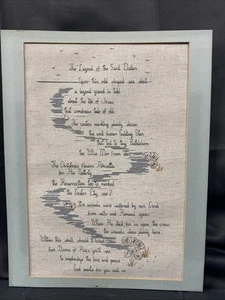 The Legend of the Sand Dollar
Upon this odd shaped sea shell
a legend grand is told
about the life of Jesus
that wonderous tale of old.
The center marking plainly shows
the well known Guiding Star
that led to tiny Bethlehem
the Wise Men from
The Christmas flower, Poinsettia
for His Nativity
the Resurrection too is marked
the Easter Lily, see?
Five wounds were suffered by our Lord
from nails and Roman's spear
When He died for us upon the cross
the wounds show plainly here.
Within this shell, should it break
two Doves of Peace you'll see
to emphasize the love and peace
God wants for you and